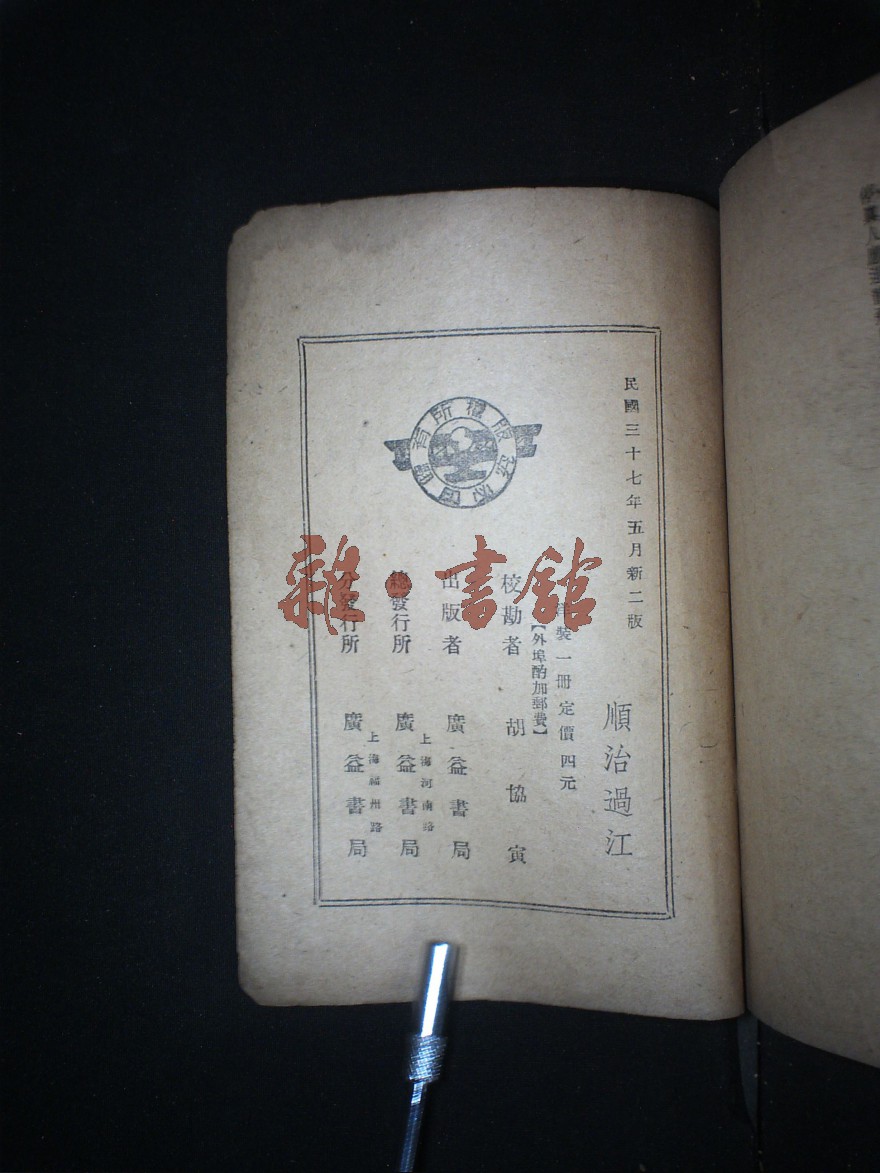 民國三十七年五月新二版
順治過江
洋裝一冊定價四元
【外埠酌加郵費】
校勘者 胡協寅
出版者 廣益書局
總發行所 上海河南路 廣益書局
分發行所 上海福州路 廣益書局
版權所有
翻印必究
雜·書館